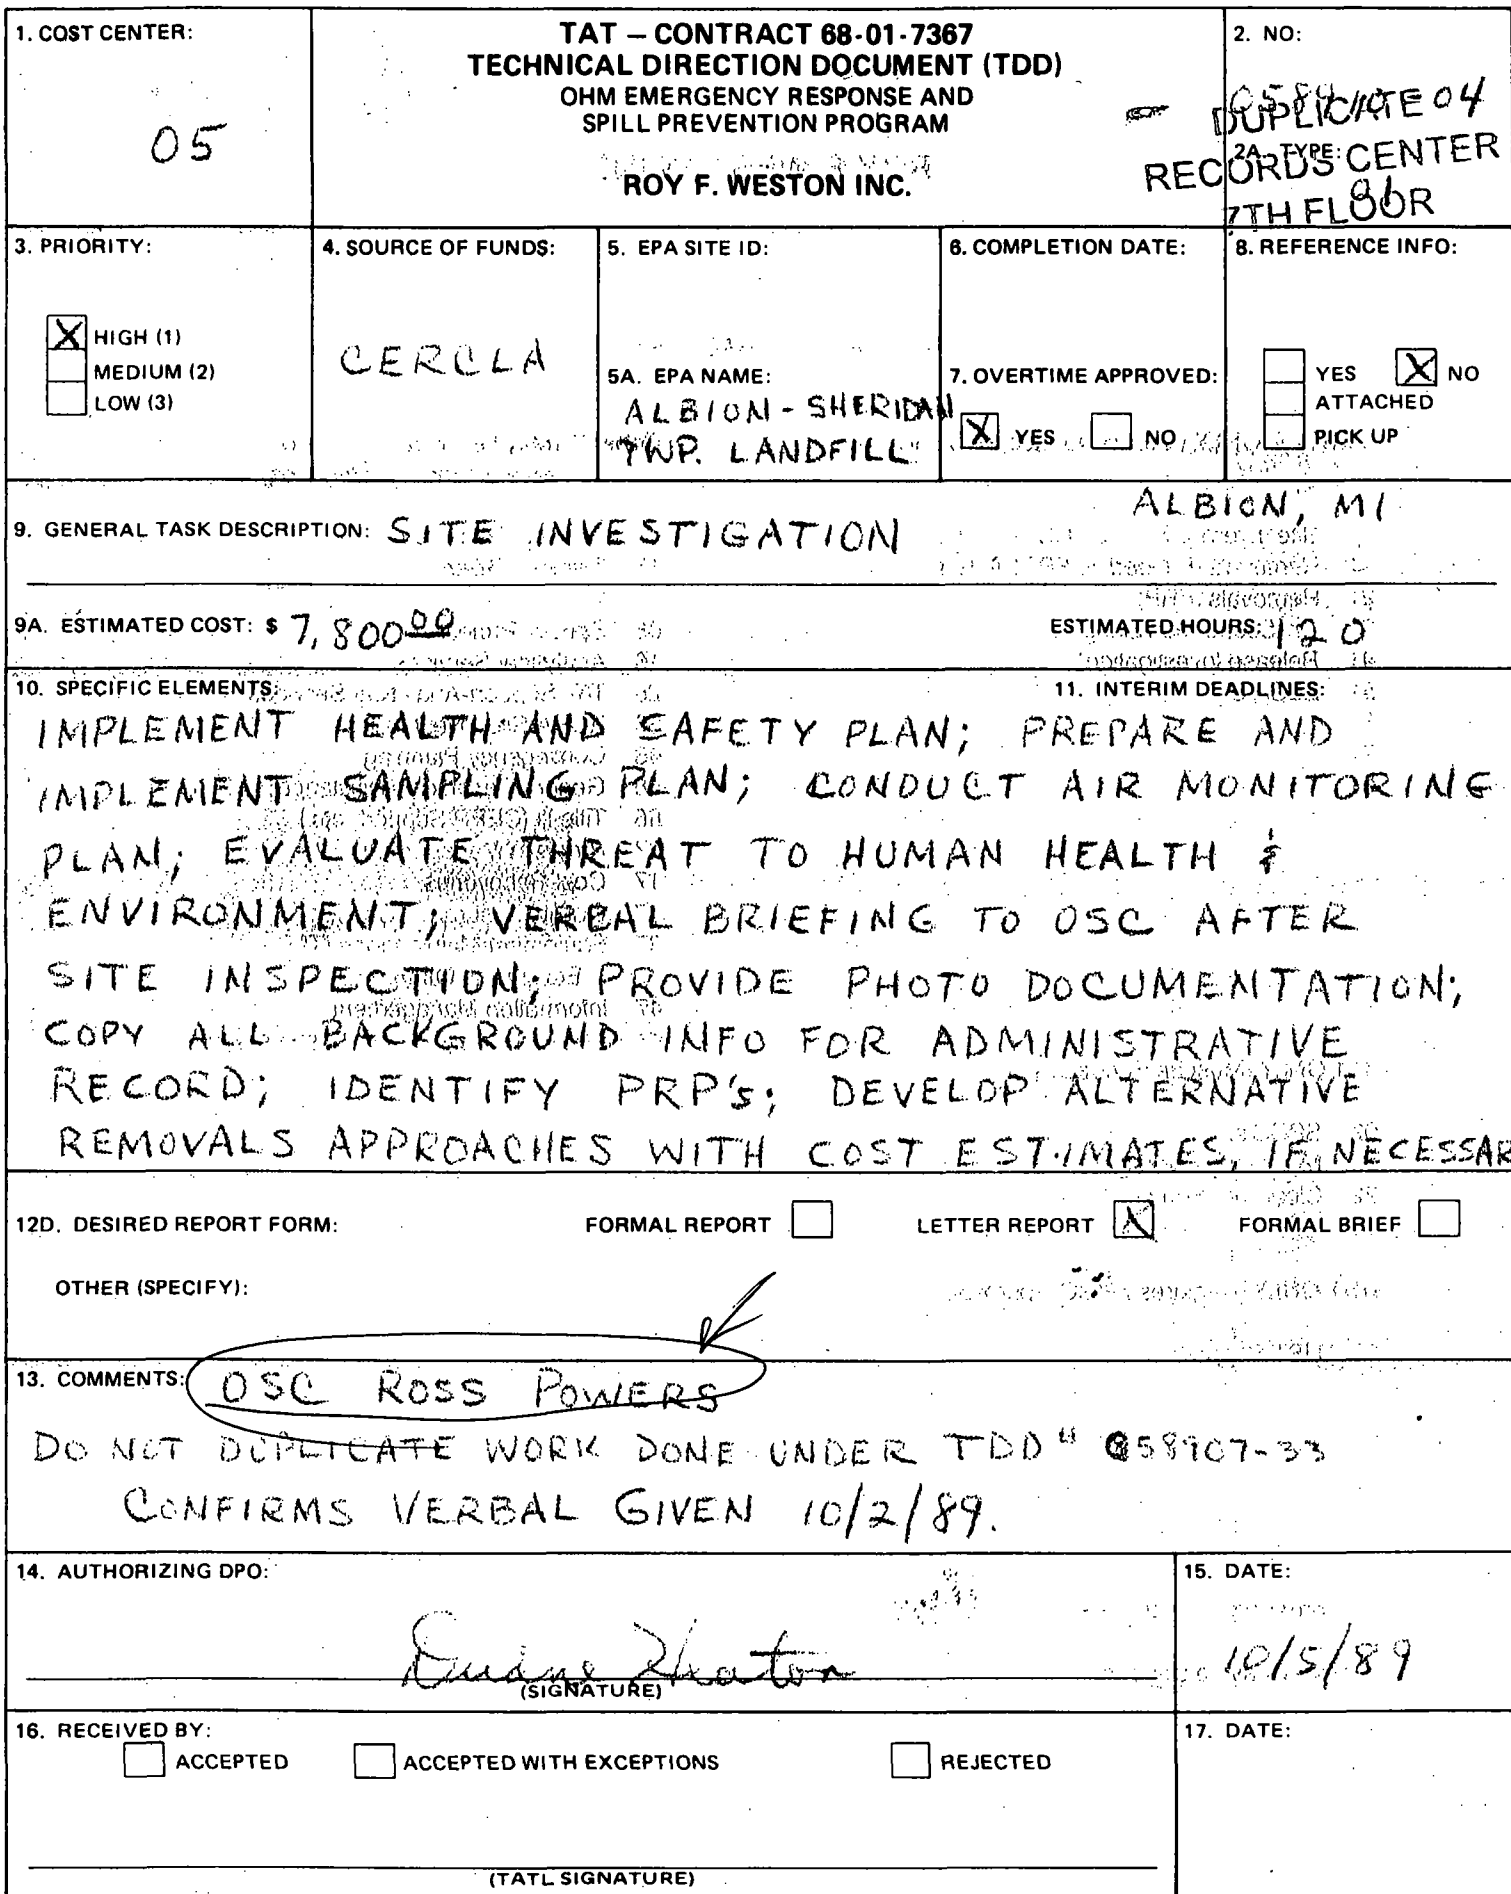 1. COST CENTER:
05
TAT – CONTRACT 68-01-7367
TECHNICAL DIRECTION DOCUMENT (TDD)
OHM EMERGENCY RESPONSE AND
SPILL PREVENTION PROGRAM
ROY F. WESTON INC.
2. NO:
04
DUPLICATE
2A. TYPE:
RECORDS CENTER
7TH FLOOR
3. PRIORITY:
X HIGH (1)
MEDIUM (2)
LOW (3)
4. SOURCE OF FUNDS:
CERCLA
5. EPA SITE ID:
5A. EPA NAME:
ALBION - SHERIDAN
TWP. LANDFILL
6. COMPLETION DATE:
7. OVERTIME APPROVED:
X YES NO
8. REFERENCE INFO:
YES X NO
ATTACHED
PICK UP
ALBION, MI
9. GENERAL TASK DESCRIPTION: SITE INVESTIGATION
9A. ESTIMATED COST: $ 7,800 00 ESTIMATED HOURS: 120
10. SPECIFIC ELEMENTS: 11. INTERIM DEADLINES:
IMPLEMENT HEALTH AND SAFETY PLAN; PREPARE AND
IMPLEMENT SAMPLING PLAN; CONDUCT AIR MONITORING
PLAN; EVALUATE THREAT TO HUMAN HEALTH &
ENVIRONMENT; VERBAL BRIEFING TO OSC AFTER
SITE INSPECTION; PROVIDE PHOTO DOCUMENTATION;
COPY ALL BACKGROUND INFO FOR ADMINISTRATIVE
RECORD; IDENTIFY PRP's; DEVELOP ALTERNATIVE
REMOVALS APPROACHES WITH COST ESTIMATES, IF NECESSAR
12D. DESIRED REPORT FORM: FORMAL REPORT LETTER REPORT X FORMAL BRIEF
OTHER (SPECIFY):
13. COMMENTS: OSC ROSS POWERS
DO NOT DUPLICATE WORK DONE UNDER TDD # 058907-33
CONFIRMS VERBAL GIVEN 10/2/89.
14. AUTHORIZING DPO:
(SIGNATURE)
15. DATE:
10/5/89
16. RECEIVED BY:
ACCEPTED ACCEPTED WITH EXCEPTIONS REJECTED
(TATL SIGNATURE)
17. DATE: